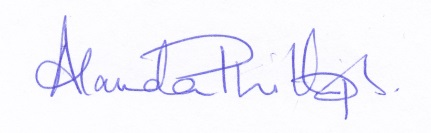 Alanda Phillips.